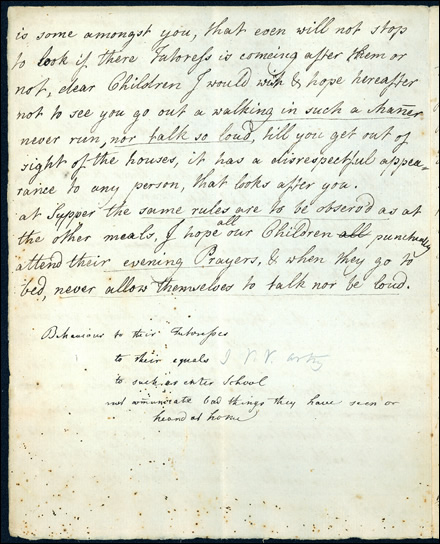 is some amongst you, that even will not stop
to look if there Tutoress is comeing after them or
not, dear Children I would wish & hope hereafter
not to see you go out a walking in such a Maner
never run, nor talk so loud, till you get out of
sight of the houses, it has a disrespectful appea-
rance to any person, that looks after you.
at Supper the same rules are to be observ'd as at
the other meals, I hope all our Children all punctualy
attend their evening Prayers, & when they go to
bed, never allow themselves to talk nor be loud.
Behaviour to their Tutoresses
to their equals
to such as enter School
not comunicate bad things they have seen or
heard at home